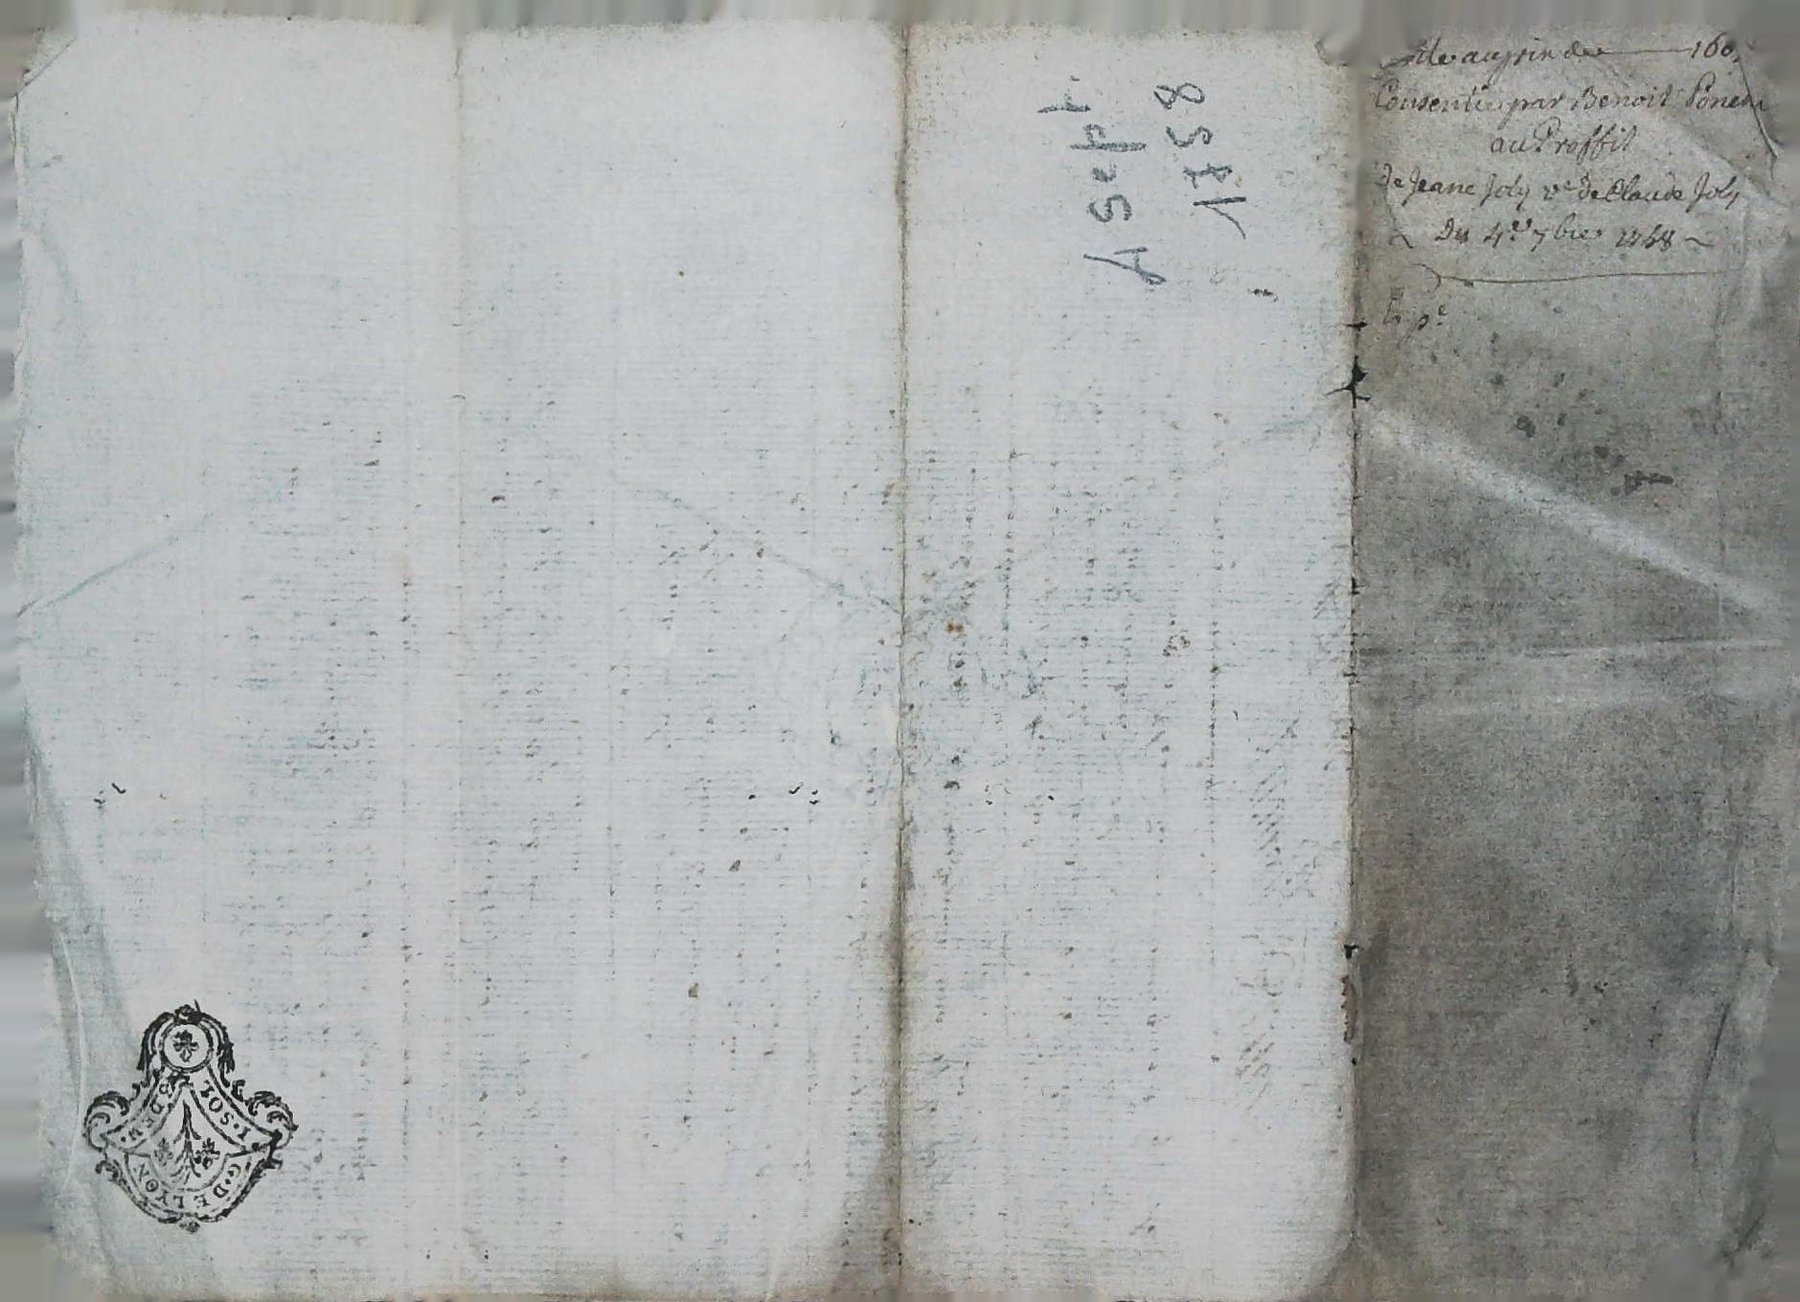 au prix de 160
Consentie par Benoit
au Proffit
de Jeane Joly ve de Claude Joly
Du 4e 7bre 1758
Exp.e
4 Sept
1758
I. SOL
S. DEN.
G. DE LYON